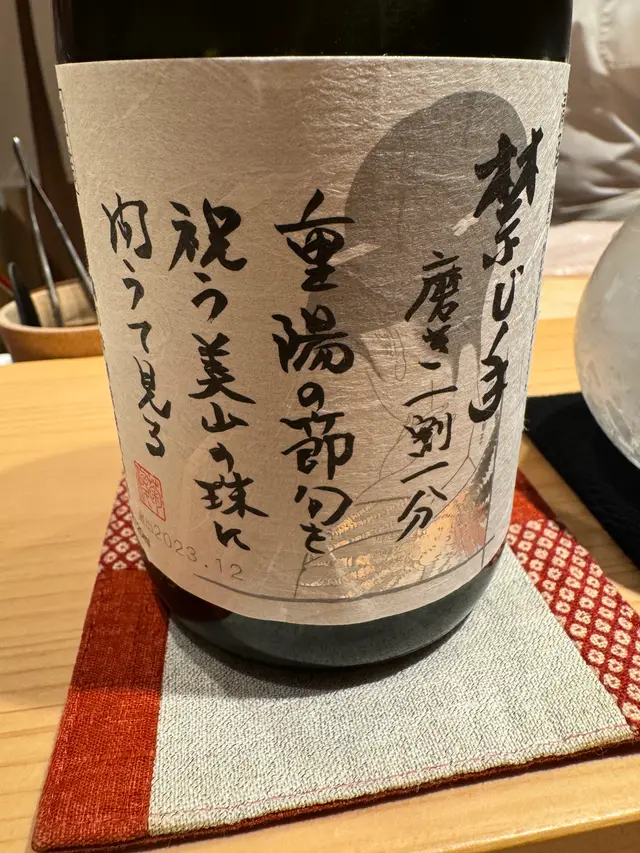 禁じ手
磨き二割一分
重陽の節句を
祝う美山の珠に
問うて見る
2023.12